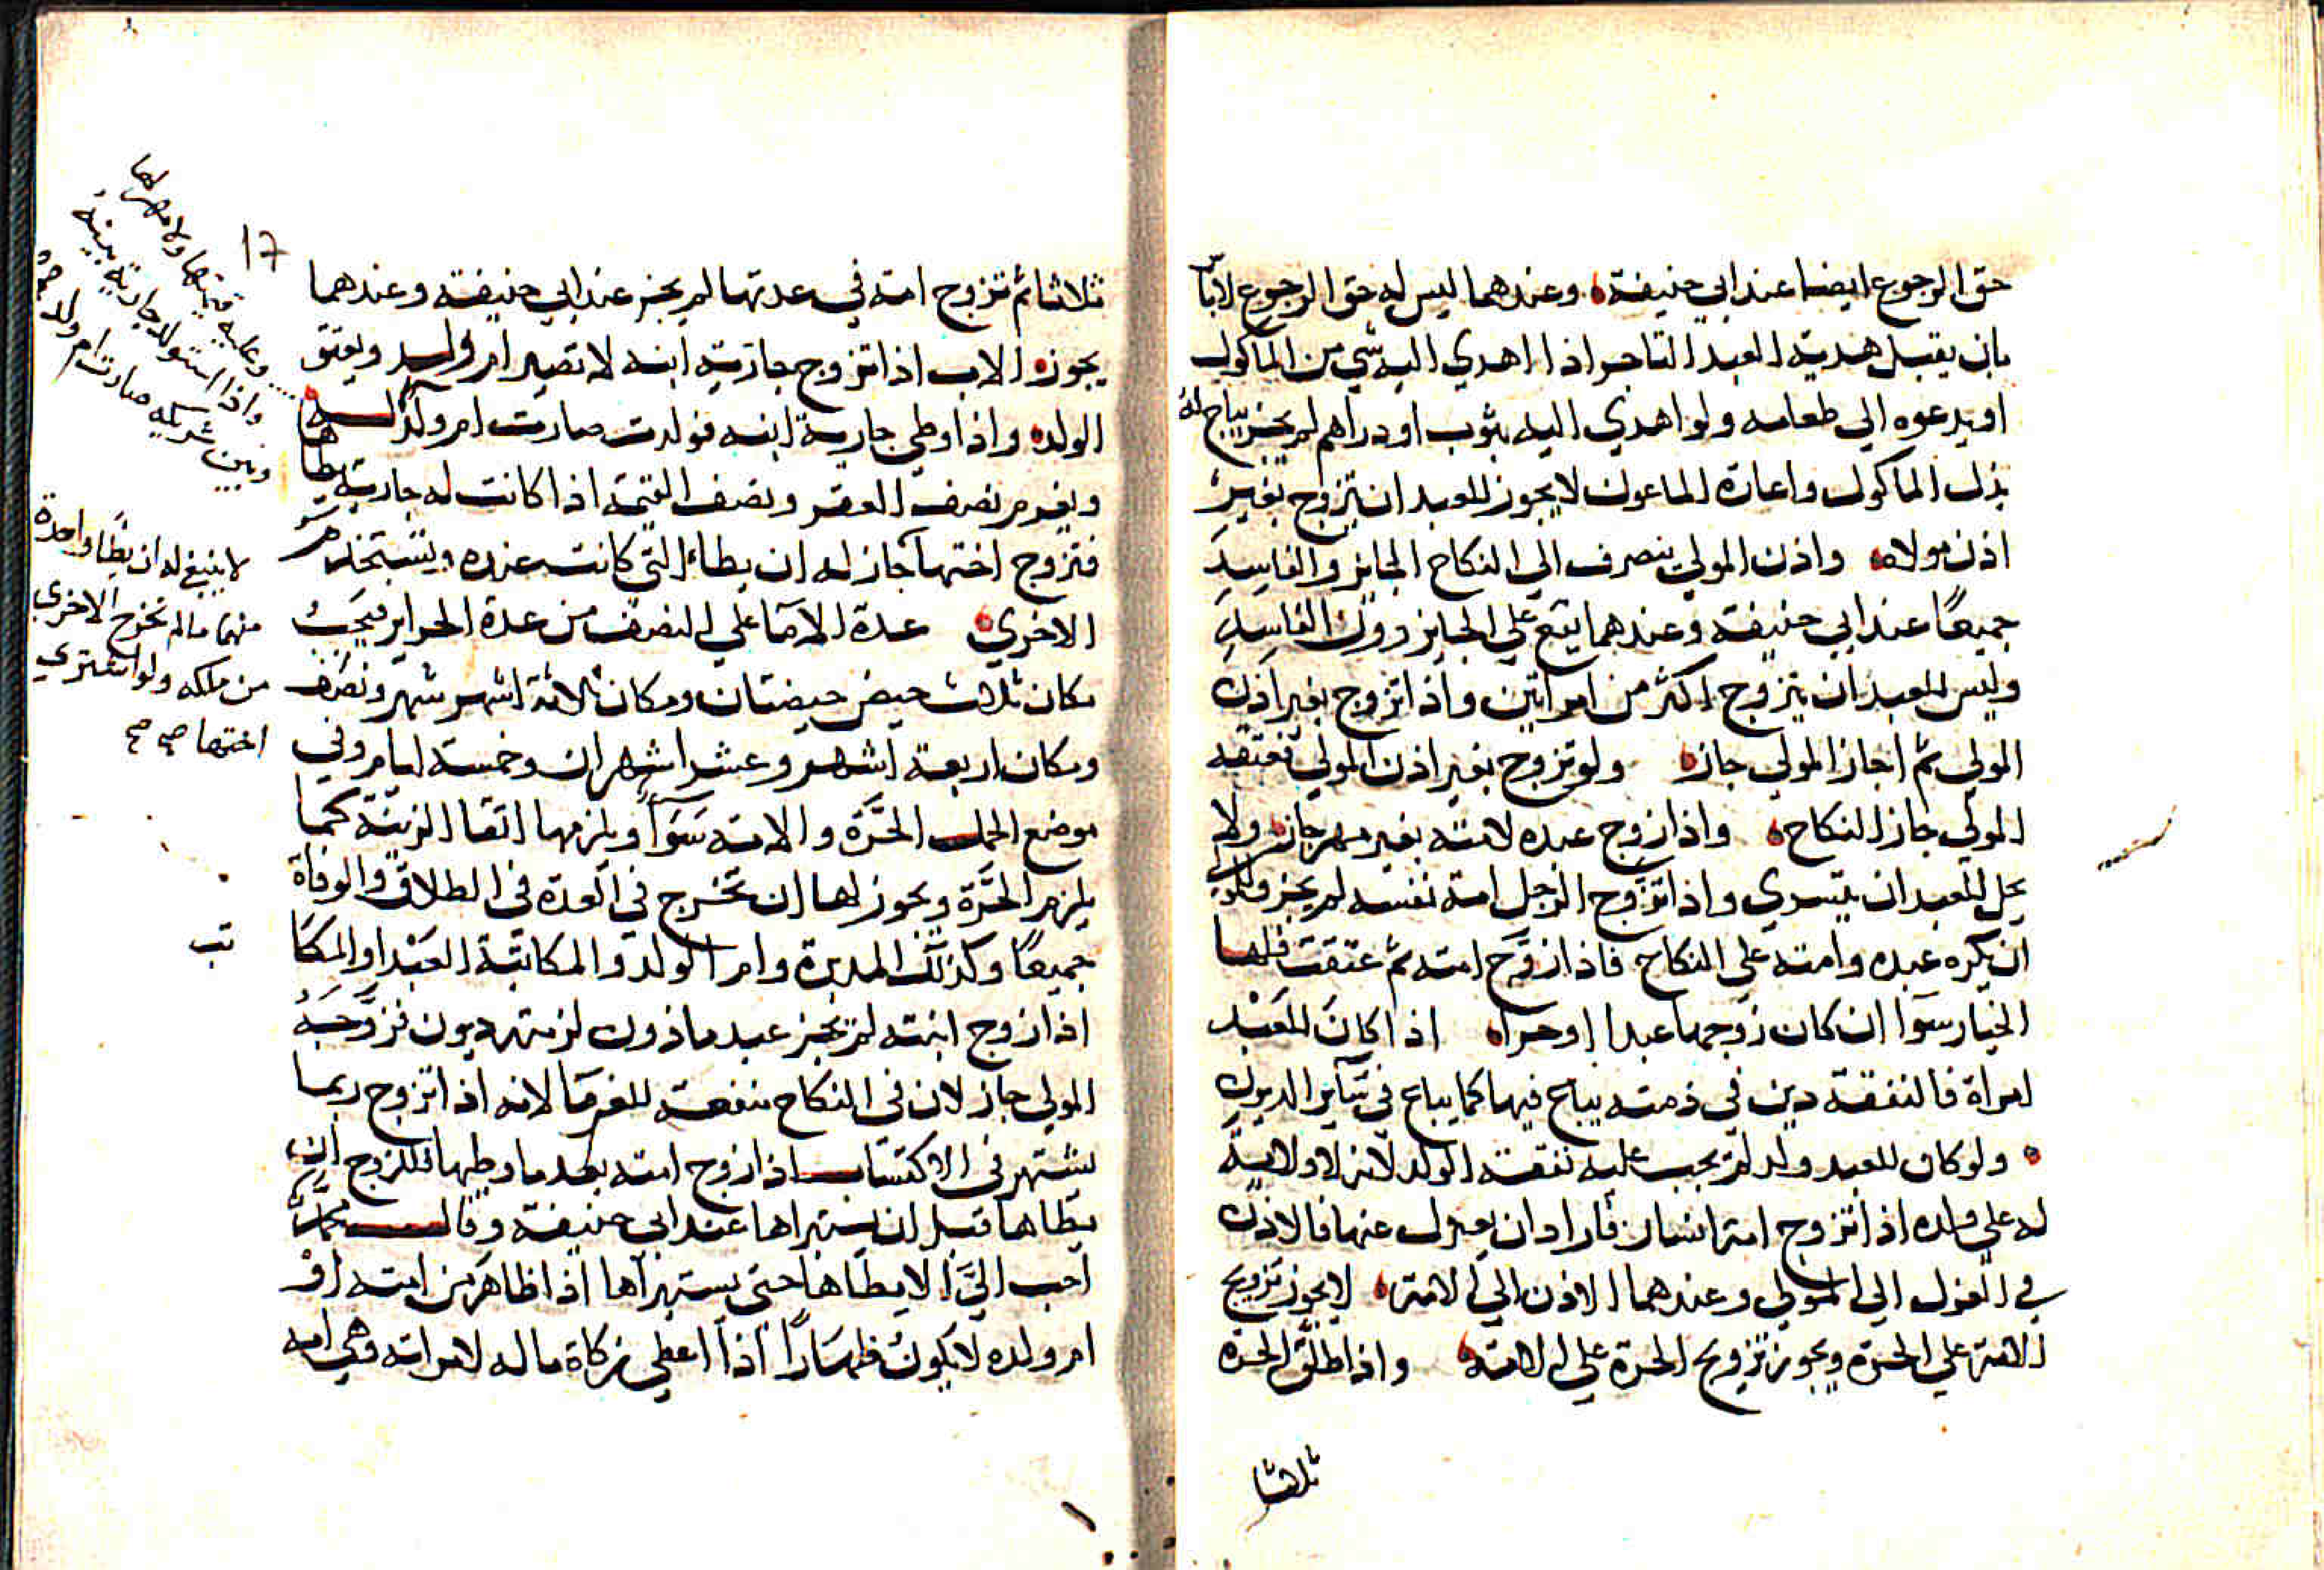 حق الرجوع ايضا عند ابي حنيفة وعندهما ليس له حق الرجوع لاباس
بان يقبل هدية العبد التاجر اذا اهدي اليه شي من الماكول
او يدعوه الي طعامه ولو اهدي اليه بثوب او دراهم لم يجز يباح له
بذل الماكول واعارة الماعون لا يجوز للعبد ان يتزوج بغير
اذن مولاه واذن المولي ينصرف الي النكاح الجايز والفاسد
جميعا عند ابي حنيفة وعندهما يقع علي الجايز دون الفاسد
وليس للعبد ان يتزوج اكثر من امراتين واذا تزوج بغير اذن
المولي ثم اجاز المولي جاز ولو تزوج بغير اذن المولي فعتقه
المولي جاز النكاح واذا زوج عبده لامته بغير مهر جاز ولا
يحل للعبد ان يتسري واذا تزوج الرجل امة نفسه لم يجز وللمولي
ان يكره عبده وامته علي النكاح فاذا زوج امته ثم عتقت فلها
الخيار سوآ ان كان زوجها عبدا او حرا اذا كان للعبد
امراة فالنفقة دين في ذمته يباع فيها كما يباع في سآير الديون
ولو كان للعبد ولد لم يجب عليه نفقة الولد لانه لا ولاية
له علي ولده اذا تزوج امة انسان فاراد ان يعزل عنها فالاذن
في العزل الي المولي وعندهما الاذن الي الامة لا يجوز تزويج
الامة علي الحرة ويجوز تزويج الحرة علي الامة واذا طلق الحرة
ثلاثا
17
ثلاثا ثم تزوج امة في عدتها لم يجز عند ابي حنيفة وعندهما
يجوز الاب اذا تزوج جارية ابنه لا تصير ام ولد ويعتق
الولد واذا وطي جارية ابنه فولدت صارت ام ولد له
ويغرم نصف العقر ونصف القيمة اذا كانت له جارية يطاها
فتزوج اختها جاز له ان يطاء التي كانت عنده ويستخدم
الاخري عدة الامآ علي النصف من عدة الحراير فيجب
مكان ثلاث حيض حيضتان ومكان ثلاثة اشهر شهر ونصف
ومكان اربعة اشهر وعشرا شهران وخمسة ايام وفي
موضع الحمل الحرة والامة سوآ ويلزمها اتقا الزينة كما
يلزم الحرة ويجوز لها ان تخرج في العدة في الطلاق والوفاة
جميعا وكذلك المدبرة وام الولد والمكاتبة العبد او المكا
تب
اذا زوج ابنته لم يجز عبد ماذون لزمته ديون فزوجه
المولي جاز لان في النكاح منفعة للغرمآ لانه اذا تزوج ربما
يشتهر في الاكتساب اذا زوج امته بعد ما وطيها فللزوج ان
يطاها قبل ان يستبراها عند ابي حنيفة وقال محمد
احب الي ان لا يطاها حتي يستبراها اذا ظاهر من امته او
ام ولده لا يكون ظهارا اذا اعطي زكاة ماله لامراته وهي امه
وعليه قيمتها ولا مهر لها
واذا استولد جارية بينه
وبين شريكه صارت ام ولد
لا ينبغي له ان يطا واحدة
منهما ما لم تخرج الاخري
من ملكه ولو اشتري
اختها صح صح